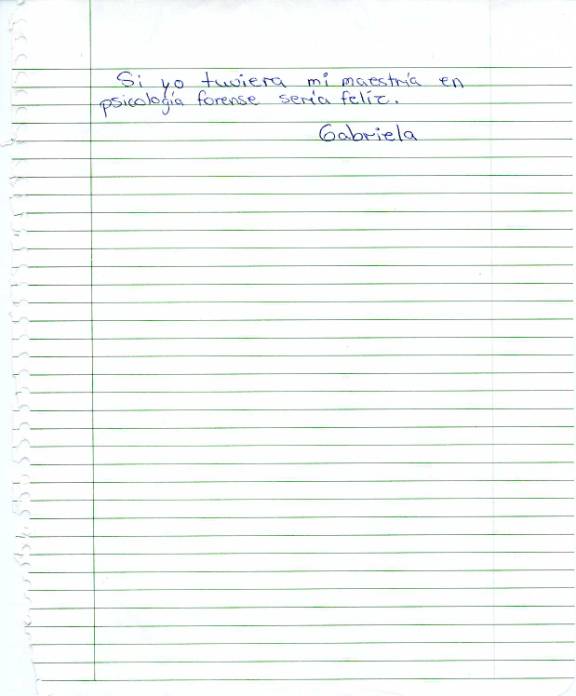 Si yo tuviera mi maestría en
psicología forense sería feliz.
Gabriela